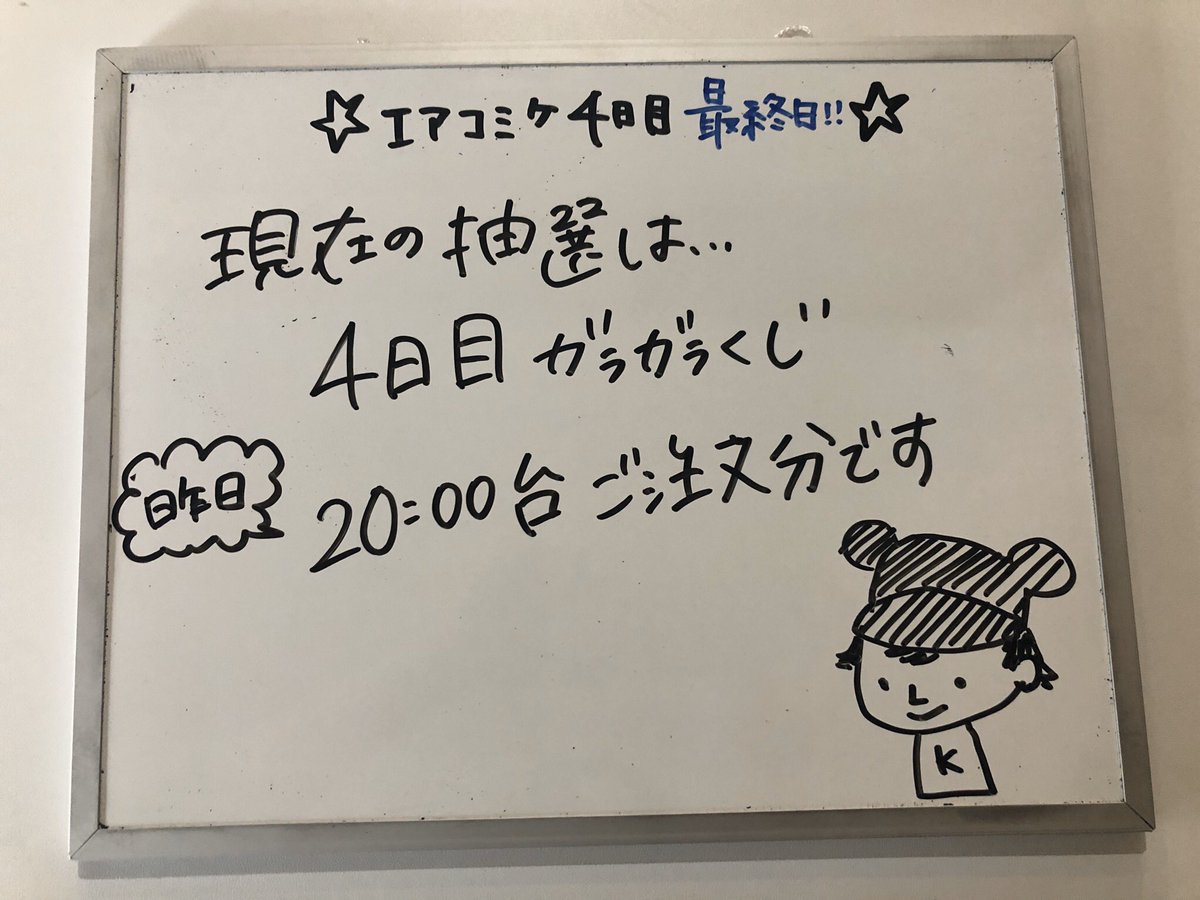 ☆エアコミケ4日目 最終日!!☆
現在の抽選は...
4日目 ガラガラくじ
昨日
20:00台 ご注文分です
K